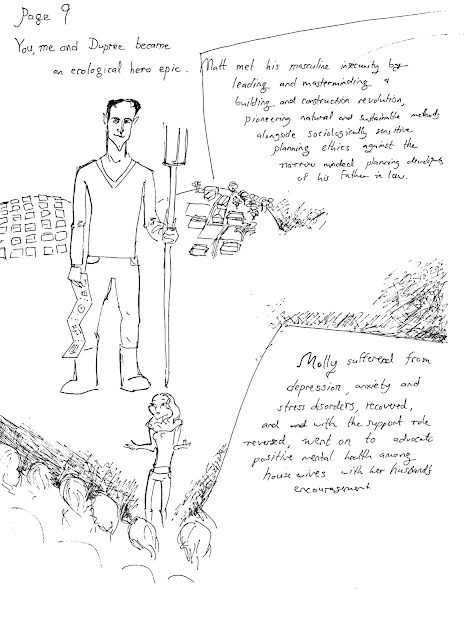 Page 9
You, me and Dupree became
an ecological hero epic.
Matt met his masculine insecurity by
leading and masterminding a
building and construction revolution,
pioneering natural and sustainable methods
alongside sociologically sensitive
planning ethics against the
narrow minded planning
of his Father in law.
Molly suffered from
depression, anxiety and
stress disorders, recovered,
and with the support role
reversed, went on to advocate
positive mental health among
house wives with her husbands
encouragement